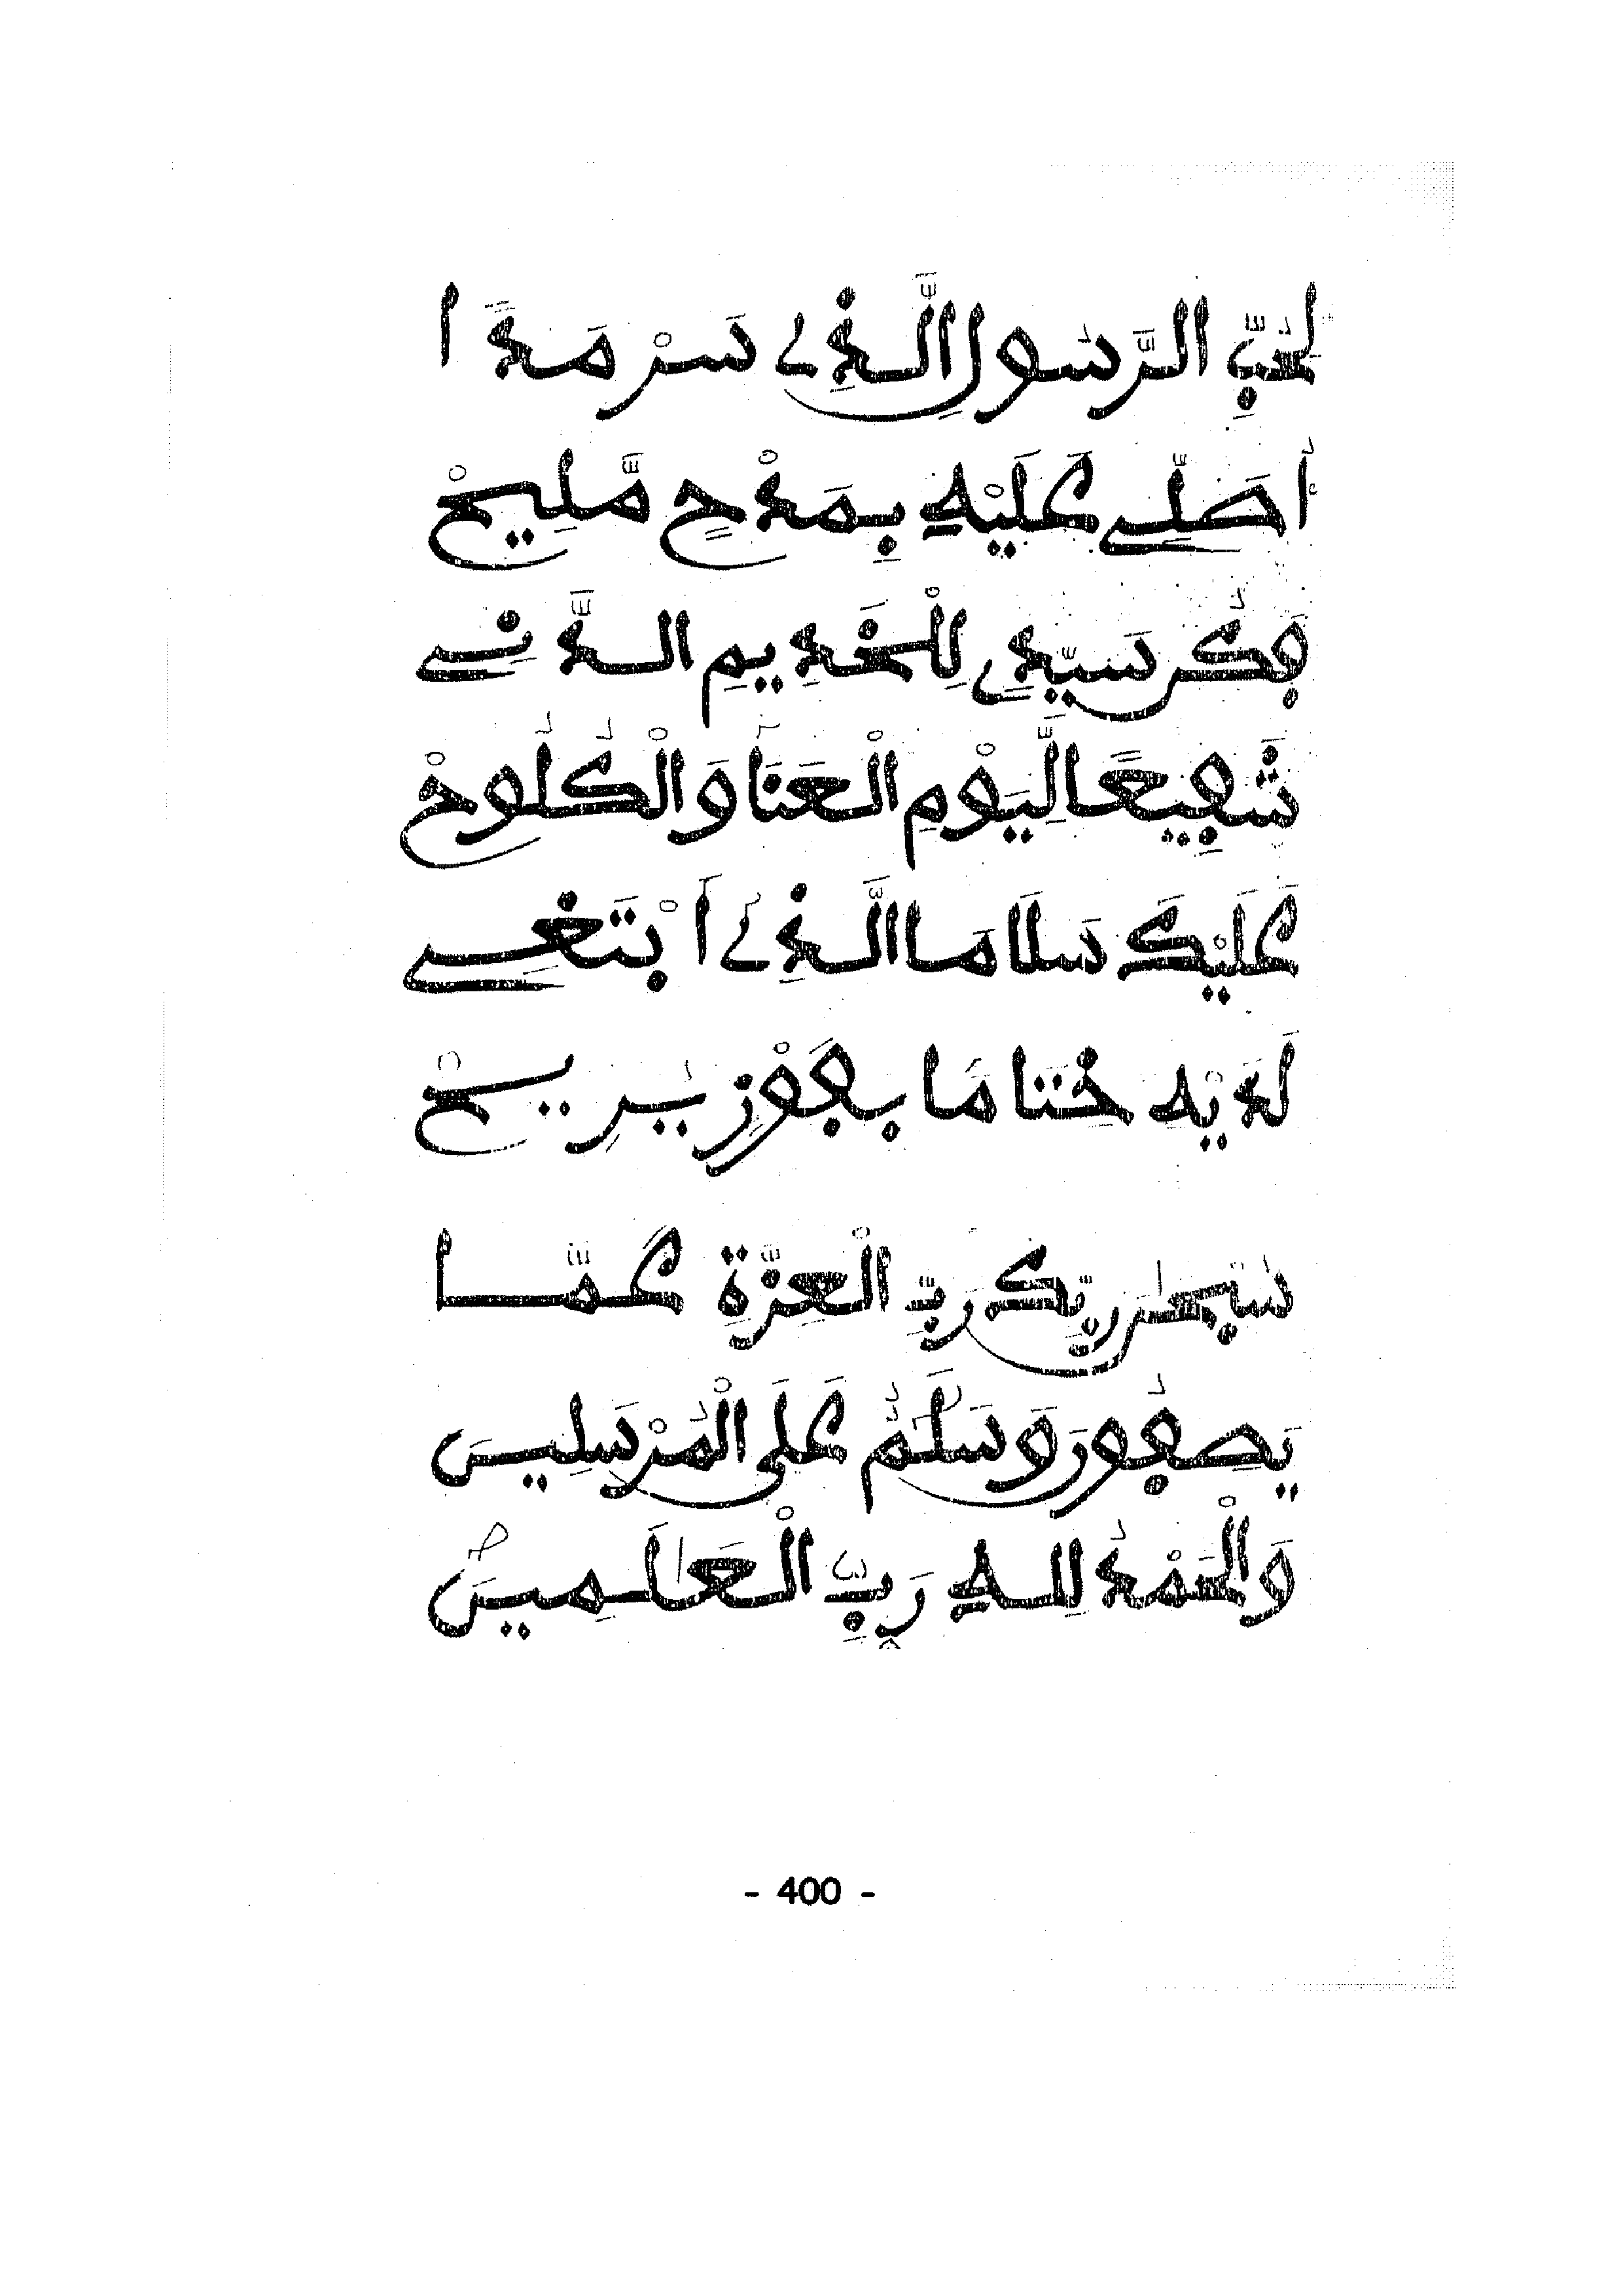 لِحُبِّ الرَّسُولِ الَّذِي سَرْمَدًا
أُصَلِّي عَلَيْهِ بِمَدْحٍ مَّلِيحْ
فَكُن سَيِّدِي لِلْخَدِيمِ الَّذِي
شَفِيعًا لِّيَوْمِ الْعَنَا وَالْكُلُوحْ
عَلَيْكَ سَلَامَا الَّذِي أَبْتَغِي
لَدَيْهِ خِتَامًا بِفَوْزٍ يُرِيحْ
سُبْحَٰنَ رَبِّكَ رَبِّ الْعِزَّةِ عَمَّا
يَصِفُونَ وَسَلَٰمٌ عَلَى الْمُرْسَلِينَ
وَالْحَمْدُ لِلَّهِ رَبِّ الْعَٰلَمِينَ
- 400 -